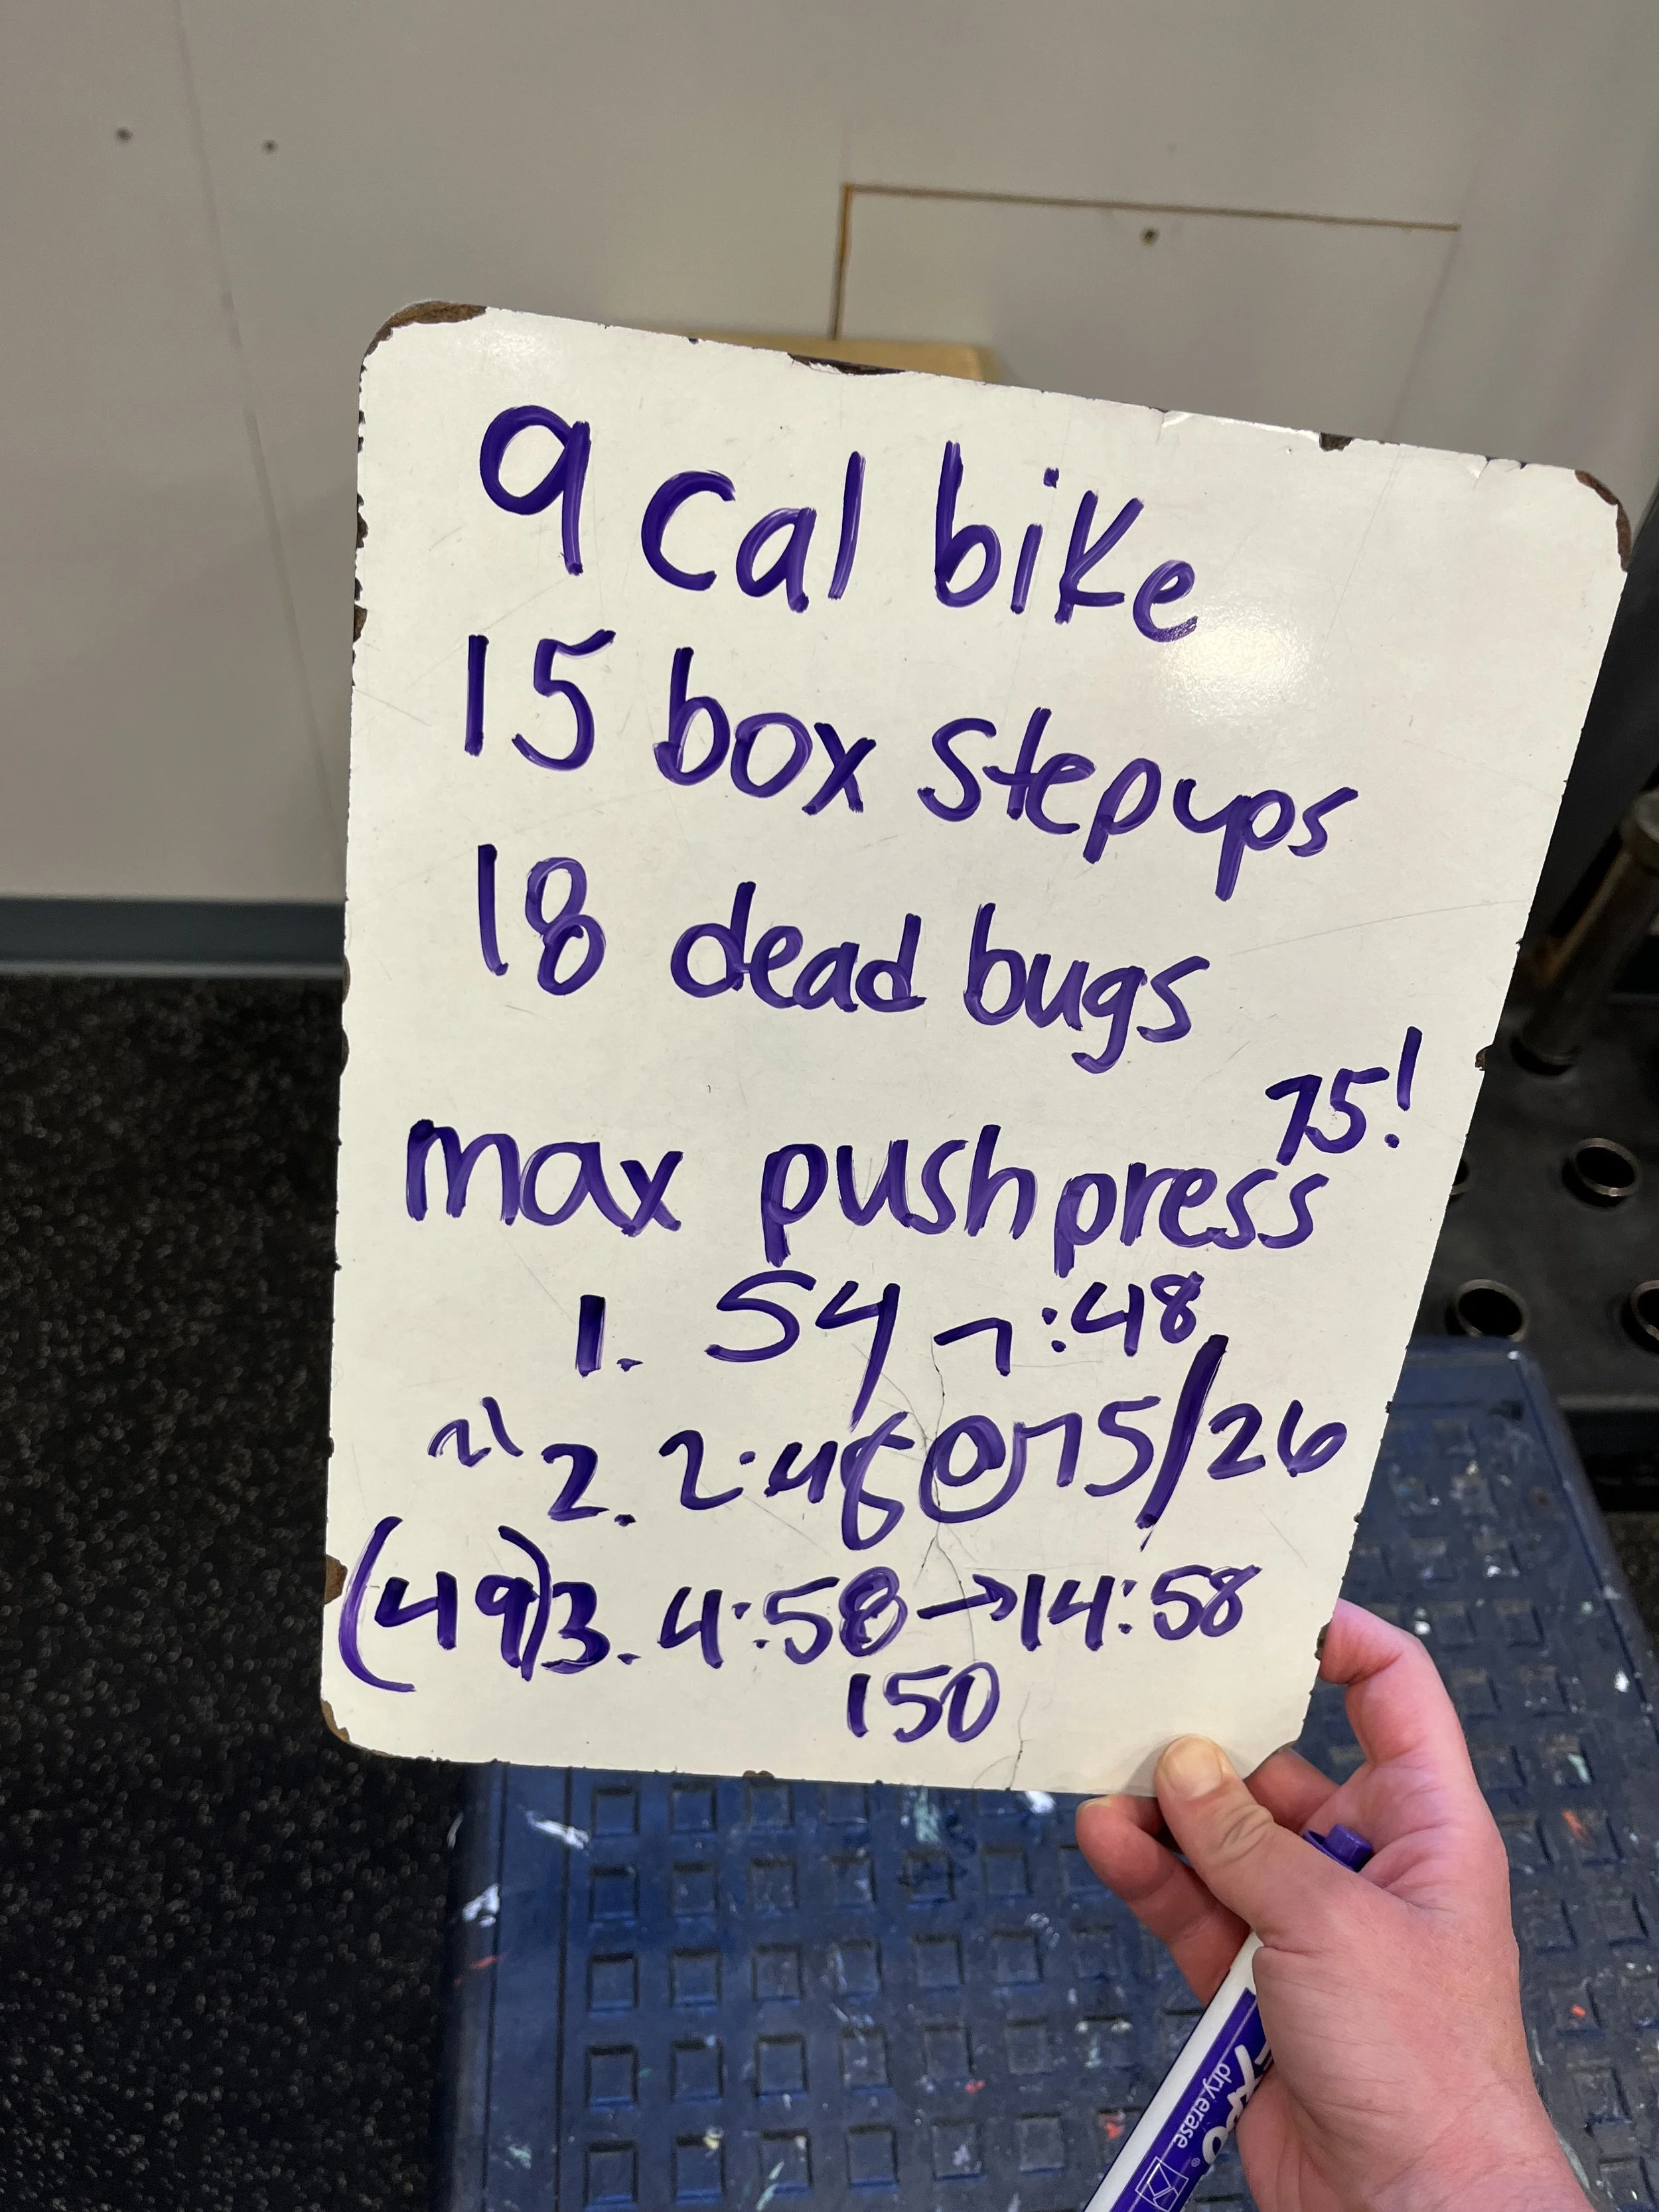 9 cal bike
15 box step ups
18 dead bugs
75!
max push press
1. 54 7:48
21 2. 2:48 @ 75/26
(49) 3. 4:58 → 14:58
150
EXPO
dry erase